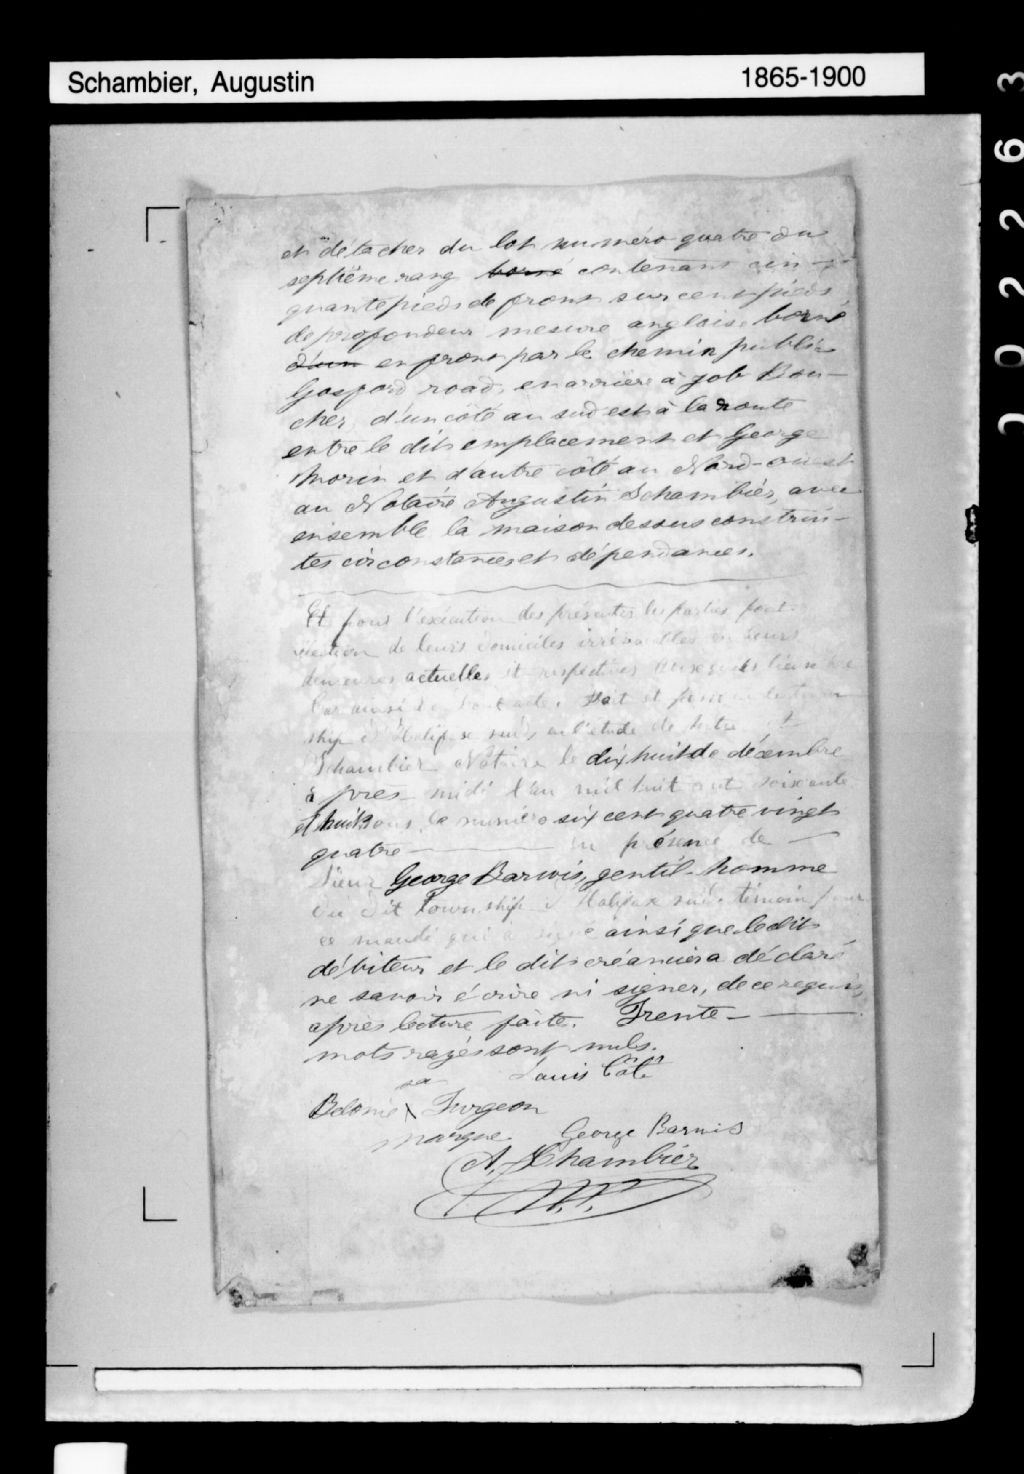 Schambier, Augustin 1865-1900
et détacher du lot numéro quatre du
septième rang borné contenant cin-
quante pieds de front sur cent pieds
de profondeur mesure anglaise borné
d'un en front par le chemin public
Gosford road, en arrière à Job Bou-
cher, d'un côté au sud est à la route
entre le dit emplacement et George
Morin et d'autre côté au Nord-ouest
au Notaire Augustin Schambier, avec
ensemble la maison dessus construi-
tes circonstances et dépendances.
Et pour l'exécution des présentes les parties font
élection de leurs domiciles irrévocables en leurs
demeures actuelles et respectives auxquels lieux &c
Car ainsi &c Dont acte. Fait et passé au dit town
ship d'Halifax sud en l'étude de
Schambier Notaire le dix huit de décembre
après midi l'an mil huit cent soixante
et huit sous le numéro six cent quatre vingt
quatre en présence de
Sieur George Barwis, gentil-homme
du dit Township d'Halifax sud témoin pour
ce mandé qui a signé ainsi que le dit
débiteur et le dit créancier a déclaré
ne savoir écrire ni signer, de ce requis,
après lecture faite. Trente-
mots rayés sont nuls.
Louis Côté
sa
Belonie X Turgeon
marque George Barwis
A. Schambier
N.P.
202263